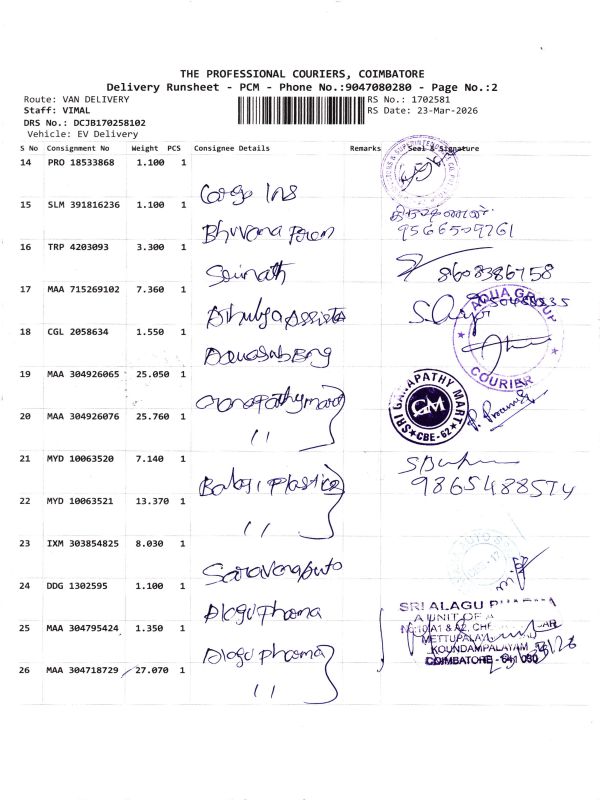 THE PROFESSIONAL COURIERS, COIMBATORE
Delivery Runsheet - PCM - Phone No.:9047080280 - Page No.:2
Route: VAN DELIVERY RS No.: 1702581
Staff: VIMAL RS Date: 23-Mar-2026
DRS No.: DCJB170258102
Vehicle: EV Delivery
S No Consignment No Weight PCS Consignee Details Remarks Seal & Signature
14 PRO 18533868 1.100 1
Cargo Ins
15 SLM 391816236 1.100 1
Bhuvana
9566509761
16 TRP 4203093 3.300 1
Sainath 8608386758
17 MAA 715269102 7.360 1
18 CGL 2058634 1.550 1
AQUA GROUP
COURIER
19 MAA 304926065 25.050 1
Ganapathy mart
20 MAA 304926076 25.760 1
SRI GANAPATHY MART
GM
CBE-62
21 MYD 10063520 7.140 1
Balaji Plastics 9865488574
22 MYD 10063521 13.370 1
23 IXM 303854825 8.030 1
Saravana auto
24 DDG 1302595 1.100 1
Alagu Pharma
SRI ALAGU PHARMA
A UNIT OF
25 MAA 304795424 1.350 1
Alagu pharma
METTUPALAYAM
KOUNDAMPALAYAM
COIMBATORE - 641 030
26 MAA 304718729 27.070 1